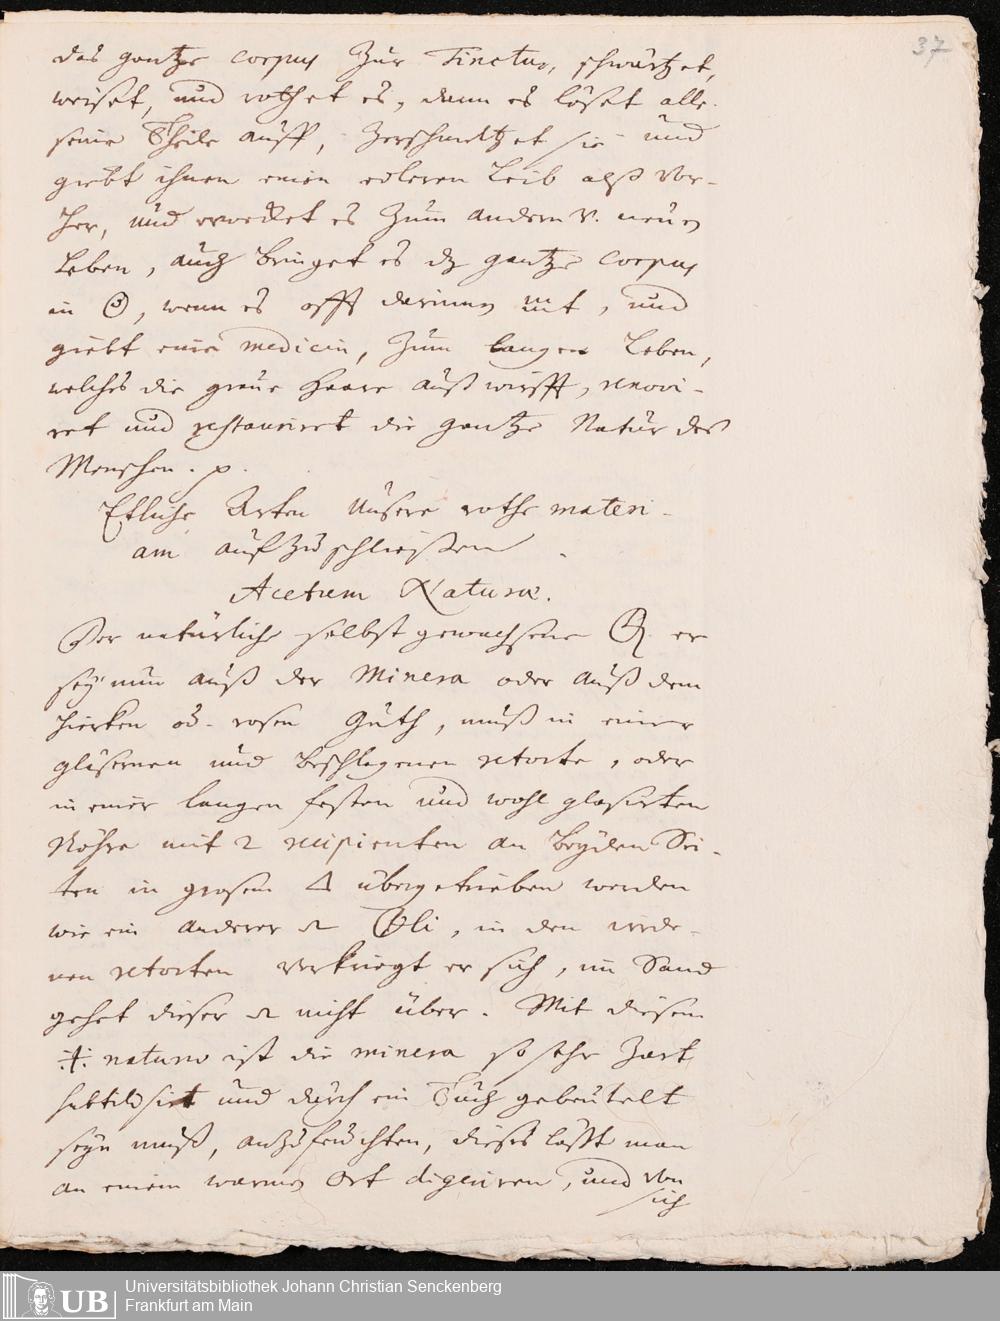 37
das gantze corpus zur Tinctur, schwärtzet,
weiset, und röthet es, dann es löset alle
seine Theile auff, zerschmeltzet sie und
giebt ihnen einen edleren Leib alß vor-
her, und erwecket es zum andern v. neuen
Leben, auch bringet es dz gantze corpus
in ☉, wenn es offt darinnen , und
giebt eine medicin, zum langen Leben,
welches die graue Haare außwirfft, renovi-
ret und restauriret die gantze Natur des
Menschen. p.
Etliche Arten unsere rothe materi-
am aufzuschließen.
Acetum Naturæ.
Der natürliche selbst gewachsene er
sey nun auß der Minera oder auß dem
od. rosen Guth, muß in einer
gläsernen und beschlagenen retorte, oder
in einer langen festen und wohl glasurten
Röhre mit 2 recipienten an beyden Sei-
ten in grosem △ übergetrieben werden
wie ein anderer Oli, in den irrde-
nen retorten verkriegt er sich, im Sand
gehet dieser nicht über. Mit diesem
naturæ ist die minera so sehr zart
subtilisirt und durch ein Tuch gebeutelt
seyn muß, anzufeuchten, dieses läßt man
an einem warmen Ort digeriren, und von
sich
UB
Universitätsbibliothek Johann Christian Senckenberg
Frankfurt am Main